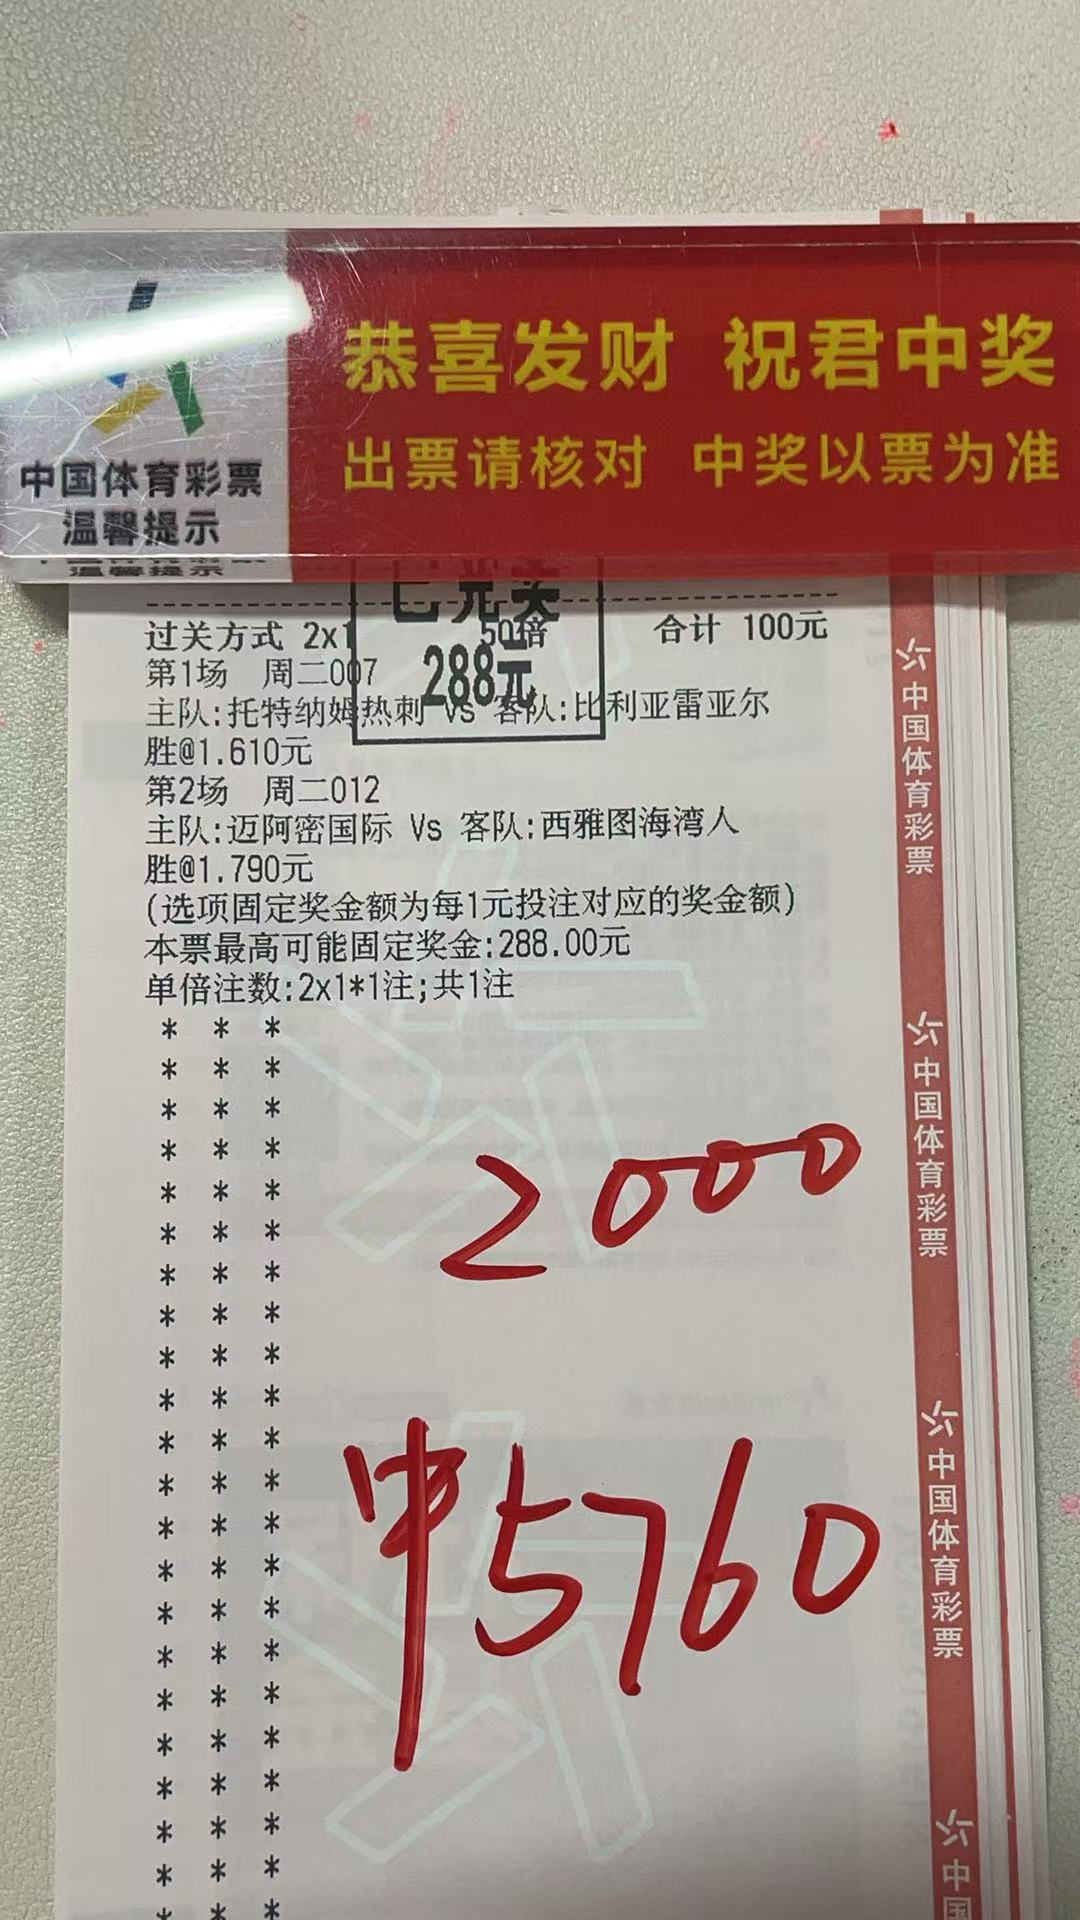 恭喜发财 祝君中奖
出票请核对 中奖以票为准
中国体育彩票
温馨提示
温馨提示
已兑奖
288元
过关方式 2x1 50倍 合计 100元
第1场 周二007
主队:托特纳姆热刺 Vs 客队:比利亚雷亚尔
胜@1.610元
第2场 周二012
主队:迈阿密国际 Vs 客队:西雅图海湾人
胜@1.790元
(选项固定奖金额为每1元投注对应的奖金额)
本票最高可能固定奖金:288.00元
单倍注数:2x1*1注;共1注
* * *
* * *
* * *
* * *
* * *
* * *
* * *
* * *
* * *
* * *
* * *
* * *
* * *
* * *
* * *
* * *
* * *
* * *
* * *
* * *
* * *
* * *
2000
中5760
中国体育彩票
中国体育彩票
中国体育彩票
中国